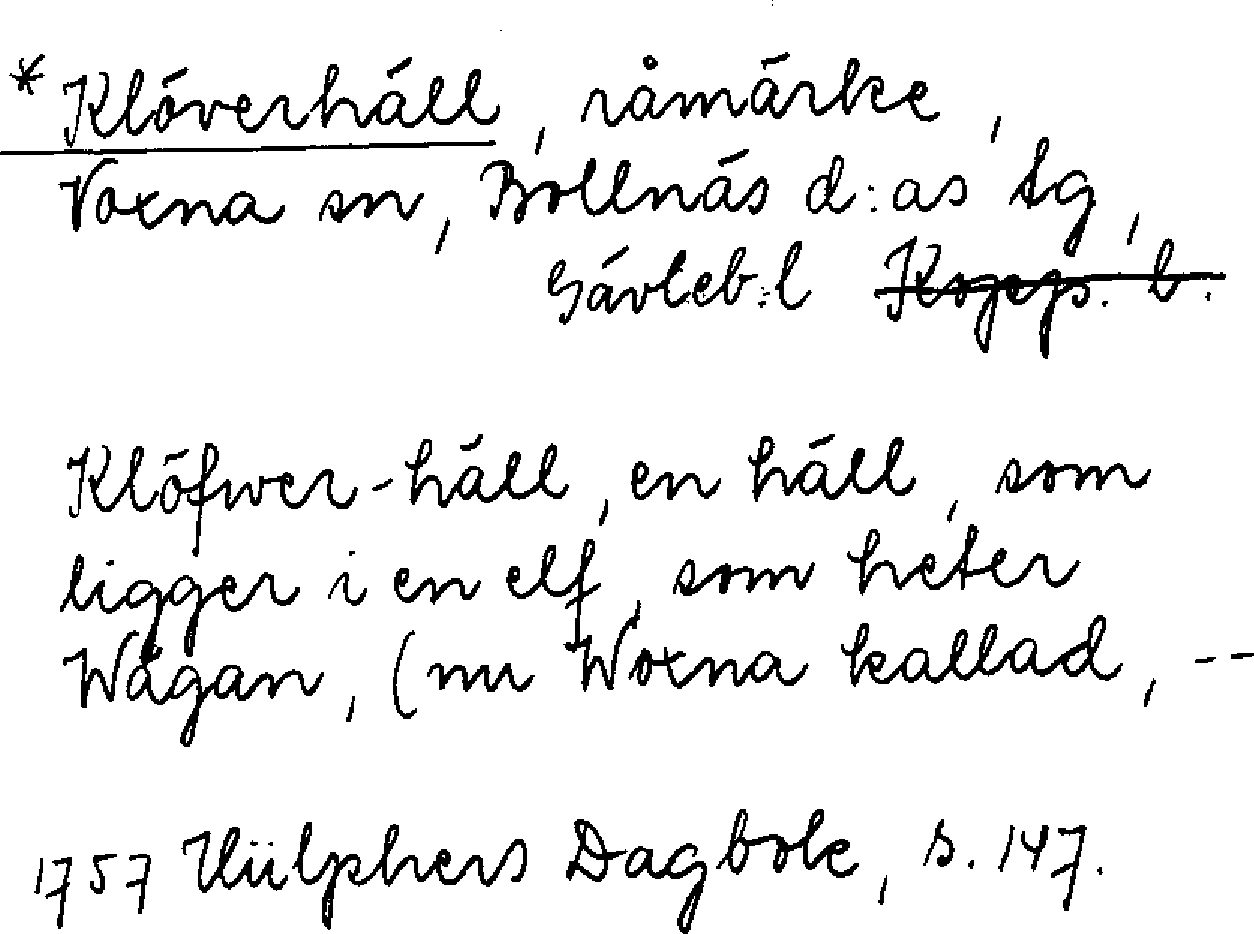 *Klöverhäll, råmärke,
Voxna sn, Bollnäs d:as tg,
Gävleb:l
Klöfwer-häll, en häll, som
ligger i en elf, som heter
Wågan, (nu Woxna kallad, --
1757 Hülphers Dagbok, s. 147.